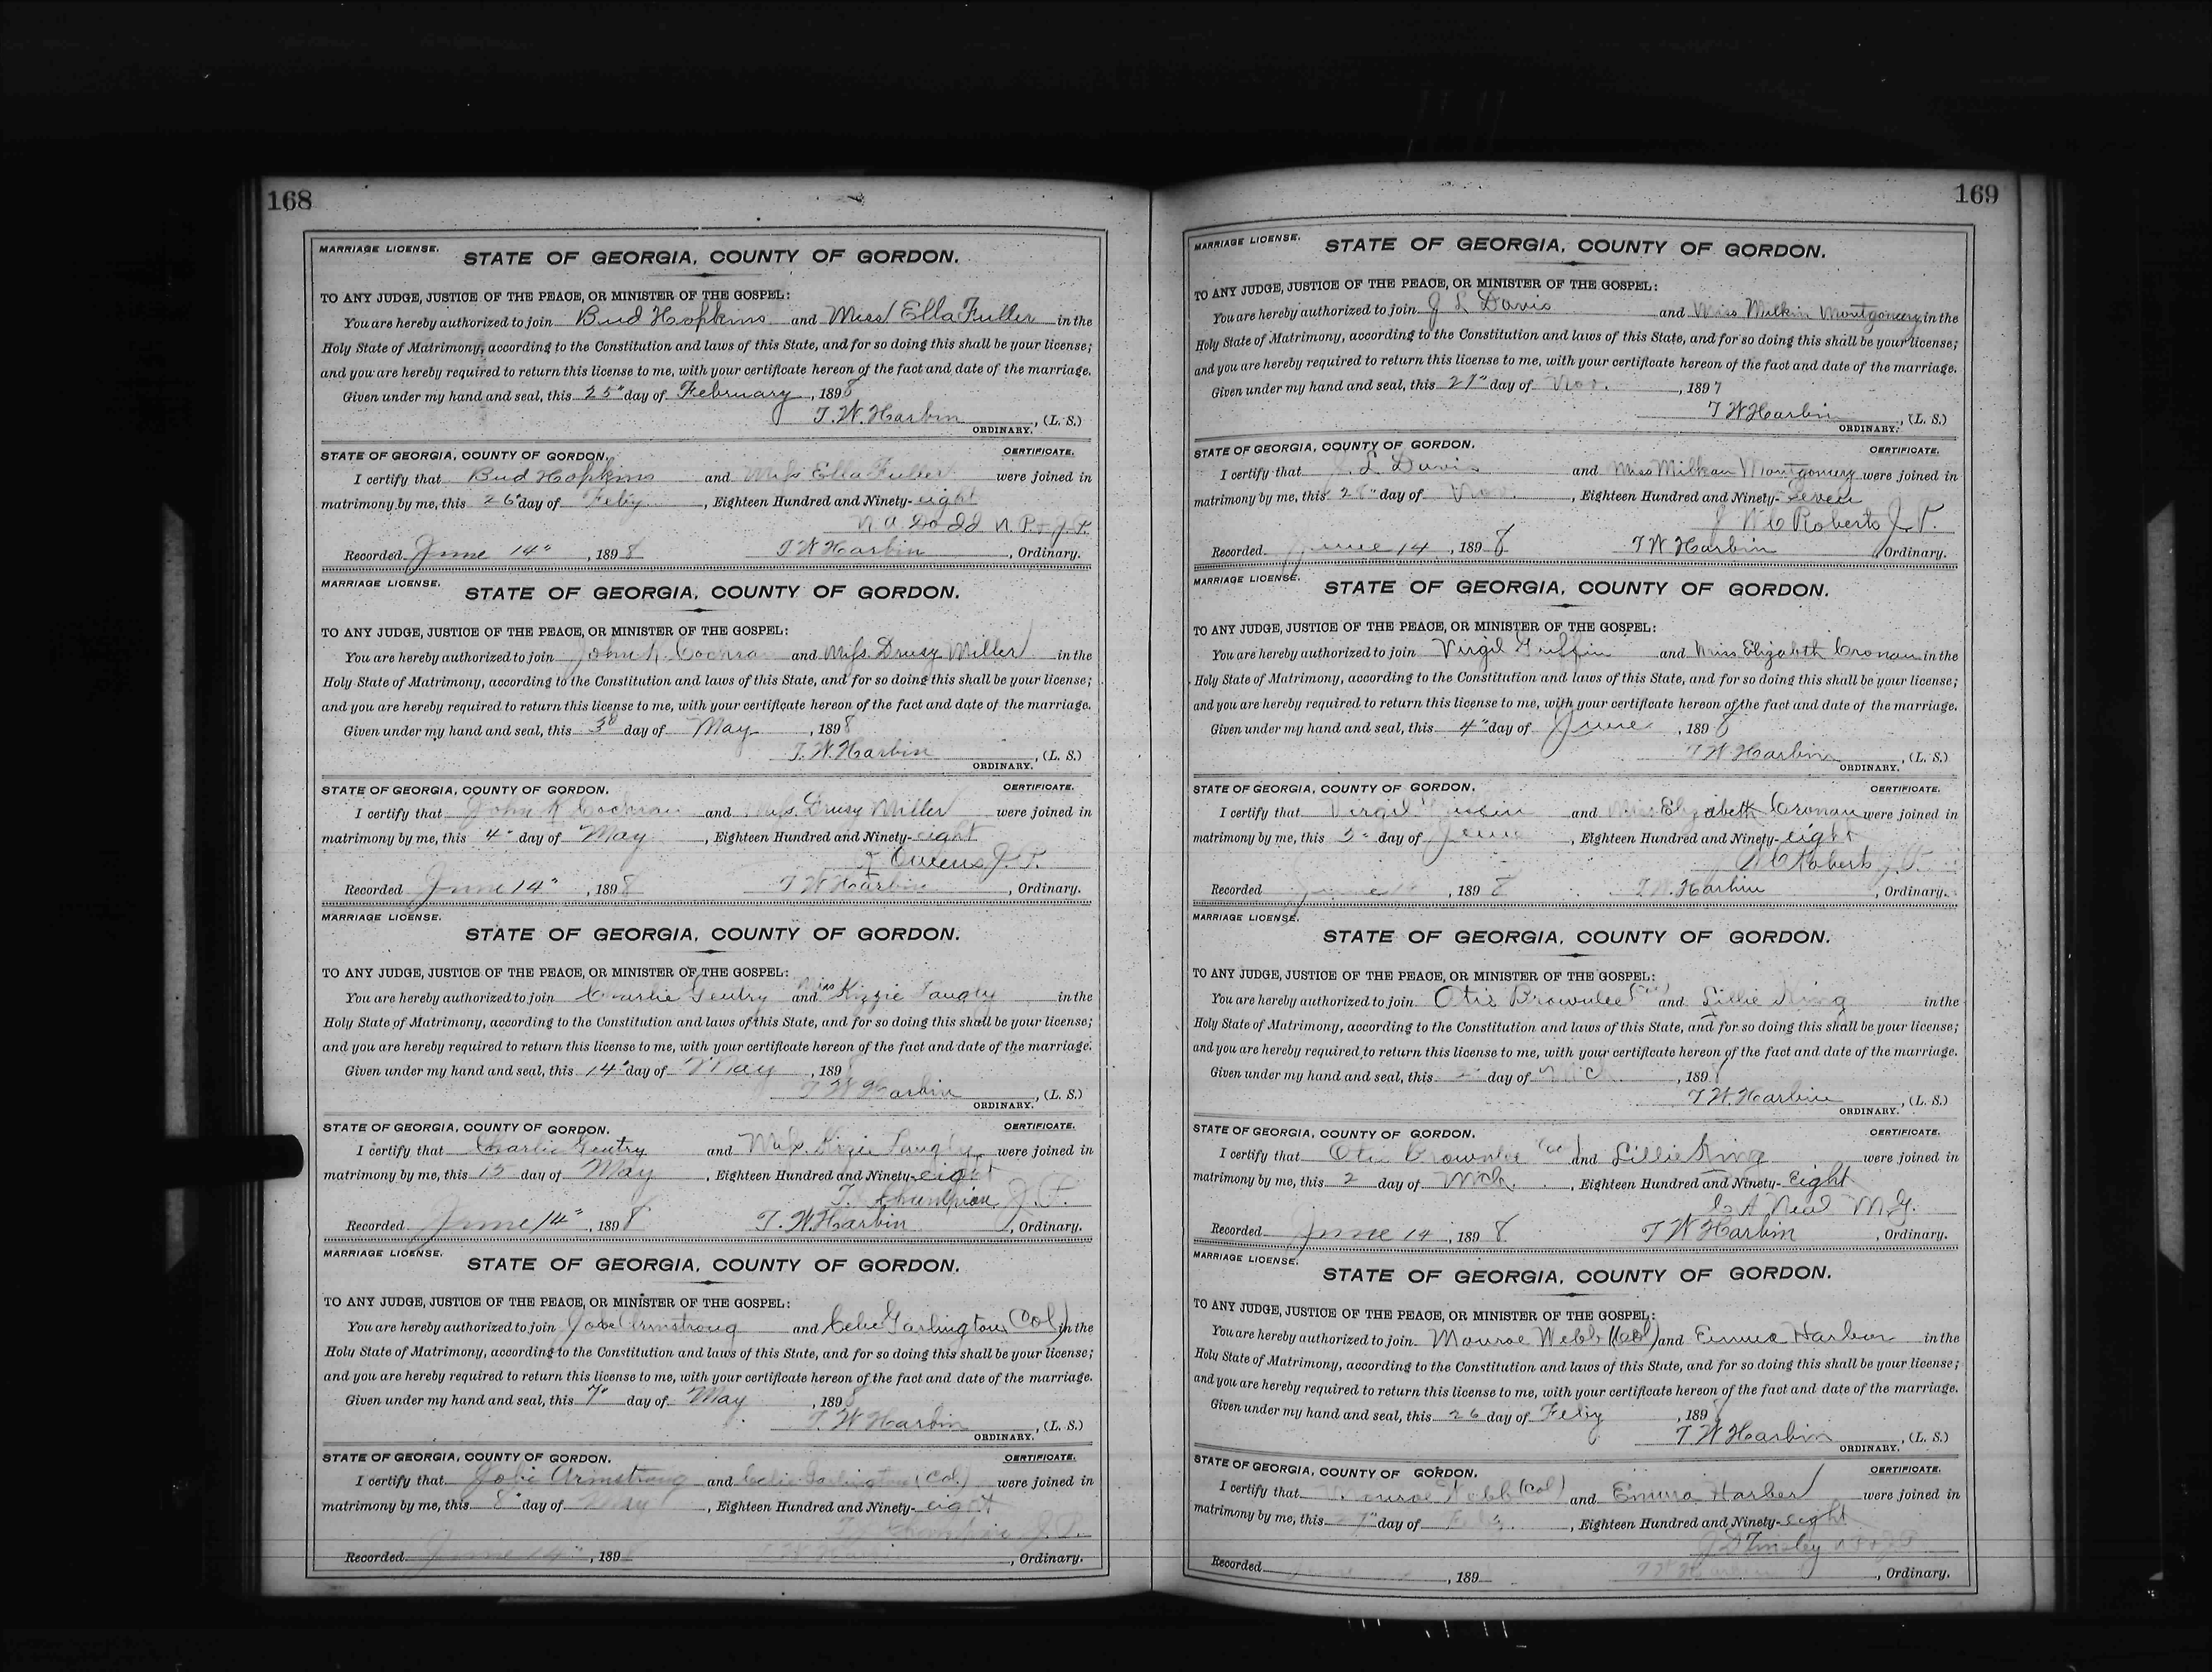 168
MARRIAGE LICENSE.
STATE OF GEORGIA, COUNTY OF GORDON.
TO ANY JUDGE, JUSTICE OF THE PEACE, OR MINISTER OF THE GOSPEL:
You are hereby authorized to join Bud Hopkins and Miss Ella Fuller in the
Holy State of Matrimony, according to the Constitution and laws of this State, and for so doing this shall be your license;
and you are hereby required to return this license to me, with your certificate hereon of the fact and date of the marriage.
Given under my hand and seal, this 25" day of February, 1898
T. W. Harbin, (L. S.)
ORDINARY.
STATE OF GEORGIA, COUNTY OF GORDON. CERTIFICATE.
I certify that Bud Hopkins and Miss Ella Fuller were joined in
matrimony by me, this 26" day of Feby, Eighteen Hundred and Ninety-eight
N. A. Dodd N. P. & J. P.
Recorded June 14", 1898 T W Harbin, Ordinary.
MARRIAGE LICENSE.
STATE OF GEORGIA, COUNTY OF GORDON.
TO ANY JUDGE, JUSTICE OF THE PEACE, OR MINISTER OF THE GOSPEL:
You are hereby authorized to join John K. Cochran and Miss Drusy Miller in the
Holy State of Matrimony, according to the Constitution and laws of this State, and for so doing this shall be your license;
and you are hereby required to return this license to me, with your certificate hereon of the fact and date of the marriage.
Given under my hand and seal, this 3d day of May, 1898
T. W. Harbin, (L. S.)
ORDINARY.
STATE OF GEORGIA, COUNTY OF GORDON. CERTIFICATE.
I certify that John K Cochran and Miss Drusy Miller were joined in
matrimony by me, this 4" day of May, Eighteen Hundred and Ninety-eight
Owens J. P.
Recorded June 14", 1898 T W Harbin, Ordinary.
MARRIAGE LICENSE.
STATE OF GEORGIA, COUNTY OF GORDON.
TO ANY JUDGE, JUSTICE OF THE PEACE, OR MINISTER OF THE GOSPEL:
You are hereby authorized to join Charlie Gentry and Miss Kizzie Taugly in the
Holy State of Matrimony, according to the Constitution and laws of this State, and for so doing this shall be your license;
and you are hereby required to return this license to me, with your certificate hereon of the fact and date of the marriage.
Given under my hand and seal, this 14" day of May, 189
T W Harbin, (L. S.)
ORDINARY.
STATE OF GEORGIA, COUNTY OF GORDON. CERTIFICATE.
I certify that Charlie Gentry and Miss Kizie were joined in
matrimony by me, this 15 day of May, Eighteen Hundred and Ninety-eight
T. J. P.
Recorded June 14", 1898 T. W. Harbin, Ordinary.
MARRIAGE LICENSE.
STATE OF GEORGIA, COUNTY OF GORDON.
TO ANY JUDGE, JUSTICE OF THE PEACE, OR MINISTER OF THE GOSPEL:
You are hereby authorized to join Jobe Armstrong and Celie Garlington (Col) in the
Holy State of Matrimony, according to the Constitution and laws of this State, and for so doing this shall be your license;
and you are hereby required to return this license to me, with your certificate hereon of the fact and date of the marriage.
Given under my hand and seal, this 7" day of May, 1898
T. W Harbin, (L. S.)
ORDINARY.
STATE OF GEORGIA, COUNTY OF GORDON. CERTIFICATE.
I certify that Jobe Armstrong and Celie Garlington (Col.) were joined in
matrimony by me, this 8" day of May, Eighteen Hundred and Ninety-eight
J. P.
Recorded June 14", 1898 T W Harbin, Ordinary.
169
MARRIAGE LICENSE.
STATE OF GEORGIA, COUNTY OF GORDON.
TO ANY JUDGE, JUSTICE OF THE PEACE, OR MINISTER OF THE GOSPEL:
You are hereby authorized to join J L Davis and Miss Montgomery in the
Holy State of Matrimony, according to the Constitution and laws of this State, and for so doing this shall be your license;
and you are hereby required to return this license to me, with your certificate hereon of the fact and date of the marriage.
Given under my hand and seal, this 27" day of Nov., 1897
T W Harbin, (L. S.)
ORDINARY.
STATE OF GEORGIA, COUNTY OF GORDON. CERTIFICATE.
I certify that J. L Davis and Miss Montgomery were joined in
matrimony by me, this 28" day of Nov., Eighteen Hundred and Ninety-Seven
Roberts J. P.
Recorded June 14, 1898 T W Harbin, Ordinary.
MARRIAGE LICENSE.
STATE OF GEORGIA, COUNTY OF GORDON.
TO ANY JUDGE, JUSTICE OF THE PEACE, OR MINISTER OF THE GOSPEL:
You are hereby authorized to join Virgil Griffin and Miss Elizabeth Cronan in the
Holy State of Matrimony, according to the Constitution and laws of this State, and for so doing this shall be your license;
and you are hereby required to return this license to me, with your certificate hereon of the fact and date of the marriage.
Given under my hand and seal, this 4" day of June, 1898
T W Harbin, (L. S.)
ORDINARY.
STATE OF GEORGIA, COUNTY OF GORDON. CERTIFICATE.
I certify that Virgil Griffin and Miss Elizabeth Cronan were joined in
matrimony by me, this 5" day of June, Eighteen Hundred and Ninety-eight
Roberts J. P.
Recorded June 14, 1898 T. W. Harbin, Ordinary.
MARRIAGE LICENSE.
STATE OF GEORGIA, COUNTY OF GORDON.
TO ANY JUDGE, JUSTICE OF THE PEACE, OR MINISTER OF THE GOSPEL:
You are hereby authorized to join Otis Brownlee (Col) and Lillie King in the
Holy State of Matrimony, according to the Constitution and laws of this State, and for so doing this shall be your license;
and you are hereby required to return this license to me, with your certificate hereon of the fact and date of the marriage.
Given under my hand and seal, this 2" day of Mch, 1898
T. W. Harbin, (L. S.)
ORDINARY.
STATE OF GEORGIA, COUNTY OF GORDON. CERTIFICATE.
I certify that Otis Brownlee (Col) and Lillie King were joined in
matrimony by me, this 2 day of Mch., Eighteen Hundred and Ninety-Eight
C A Neal M. G.
Recorded June 14, 1898 T W Harbin, Ordinary.
MARRIAGE LICENSE.
STATE OF GEORGIA, COUNTY OF GORDON.
TO ANY JUDGE, JUSTICE OF THE PEACE, OR MINISTER OF THE GOSPEL:
You are hereby authorized to join Monroe Webb (Col) and Emma Harber in the
Holy State of Matrimony, according to the Constitution and laws of this State, and for so doing this shall be your license;
and you are hereby required to return this license to me, with your certificate hereon of the fact and date of the marriage.
Given under my hand and seal, this 26 day of Feby, 1898
T. W Harbin, (L. S.)
ORDINARY.
STATE OF GEORGIA, COUNTY OF GORDON. CERTIFICATE.
I certify that Monroe Webb (Col) and Emma Harber were joined in
matrimony by me, this 27" day of Feby, Eighteen Hundred and Ninety-eight
J D Tinsley N P & J P
Recorded, 189 T W Harbin, Ordinary.